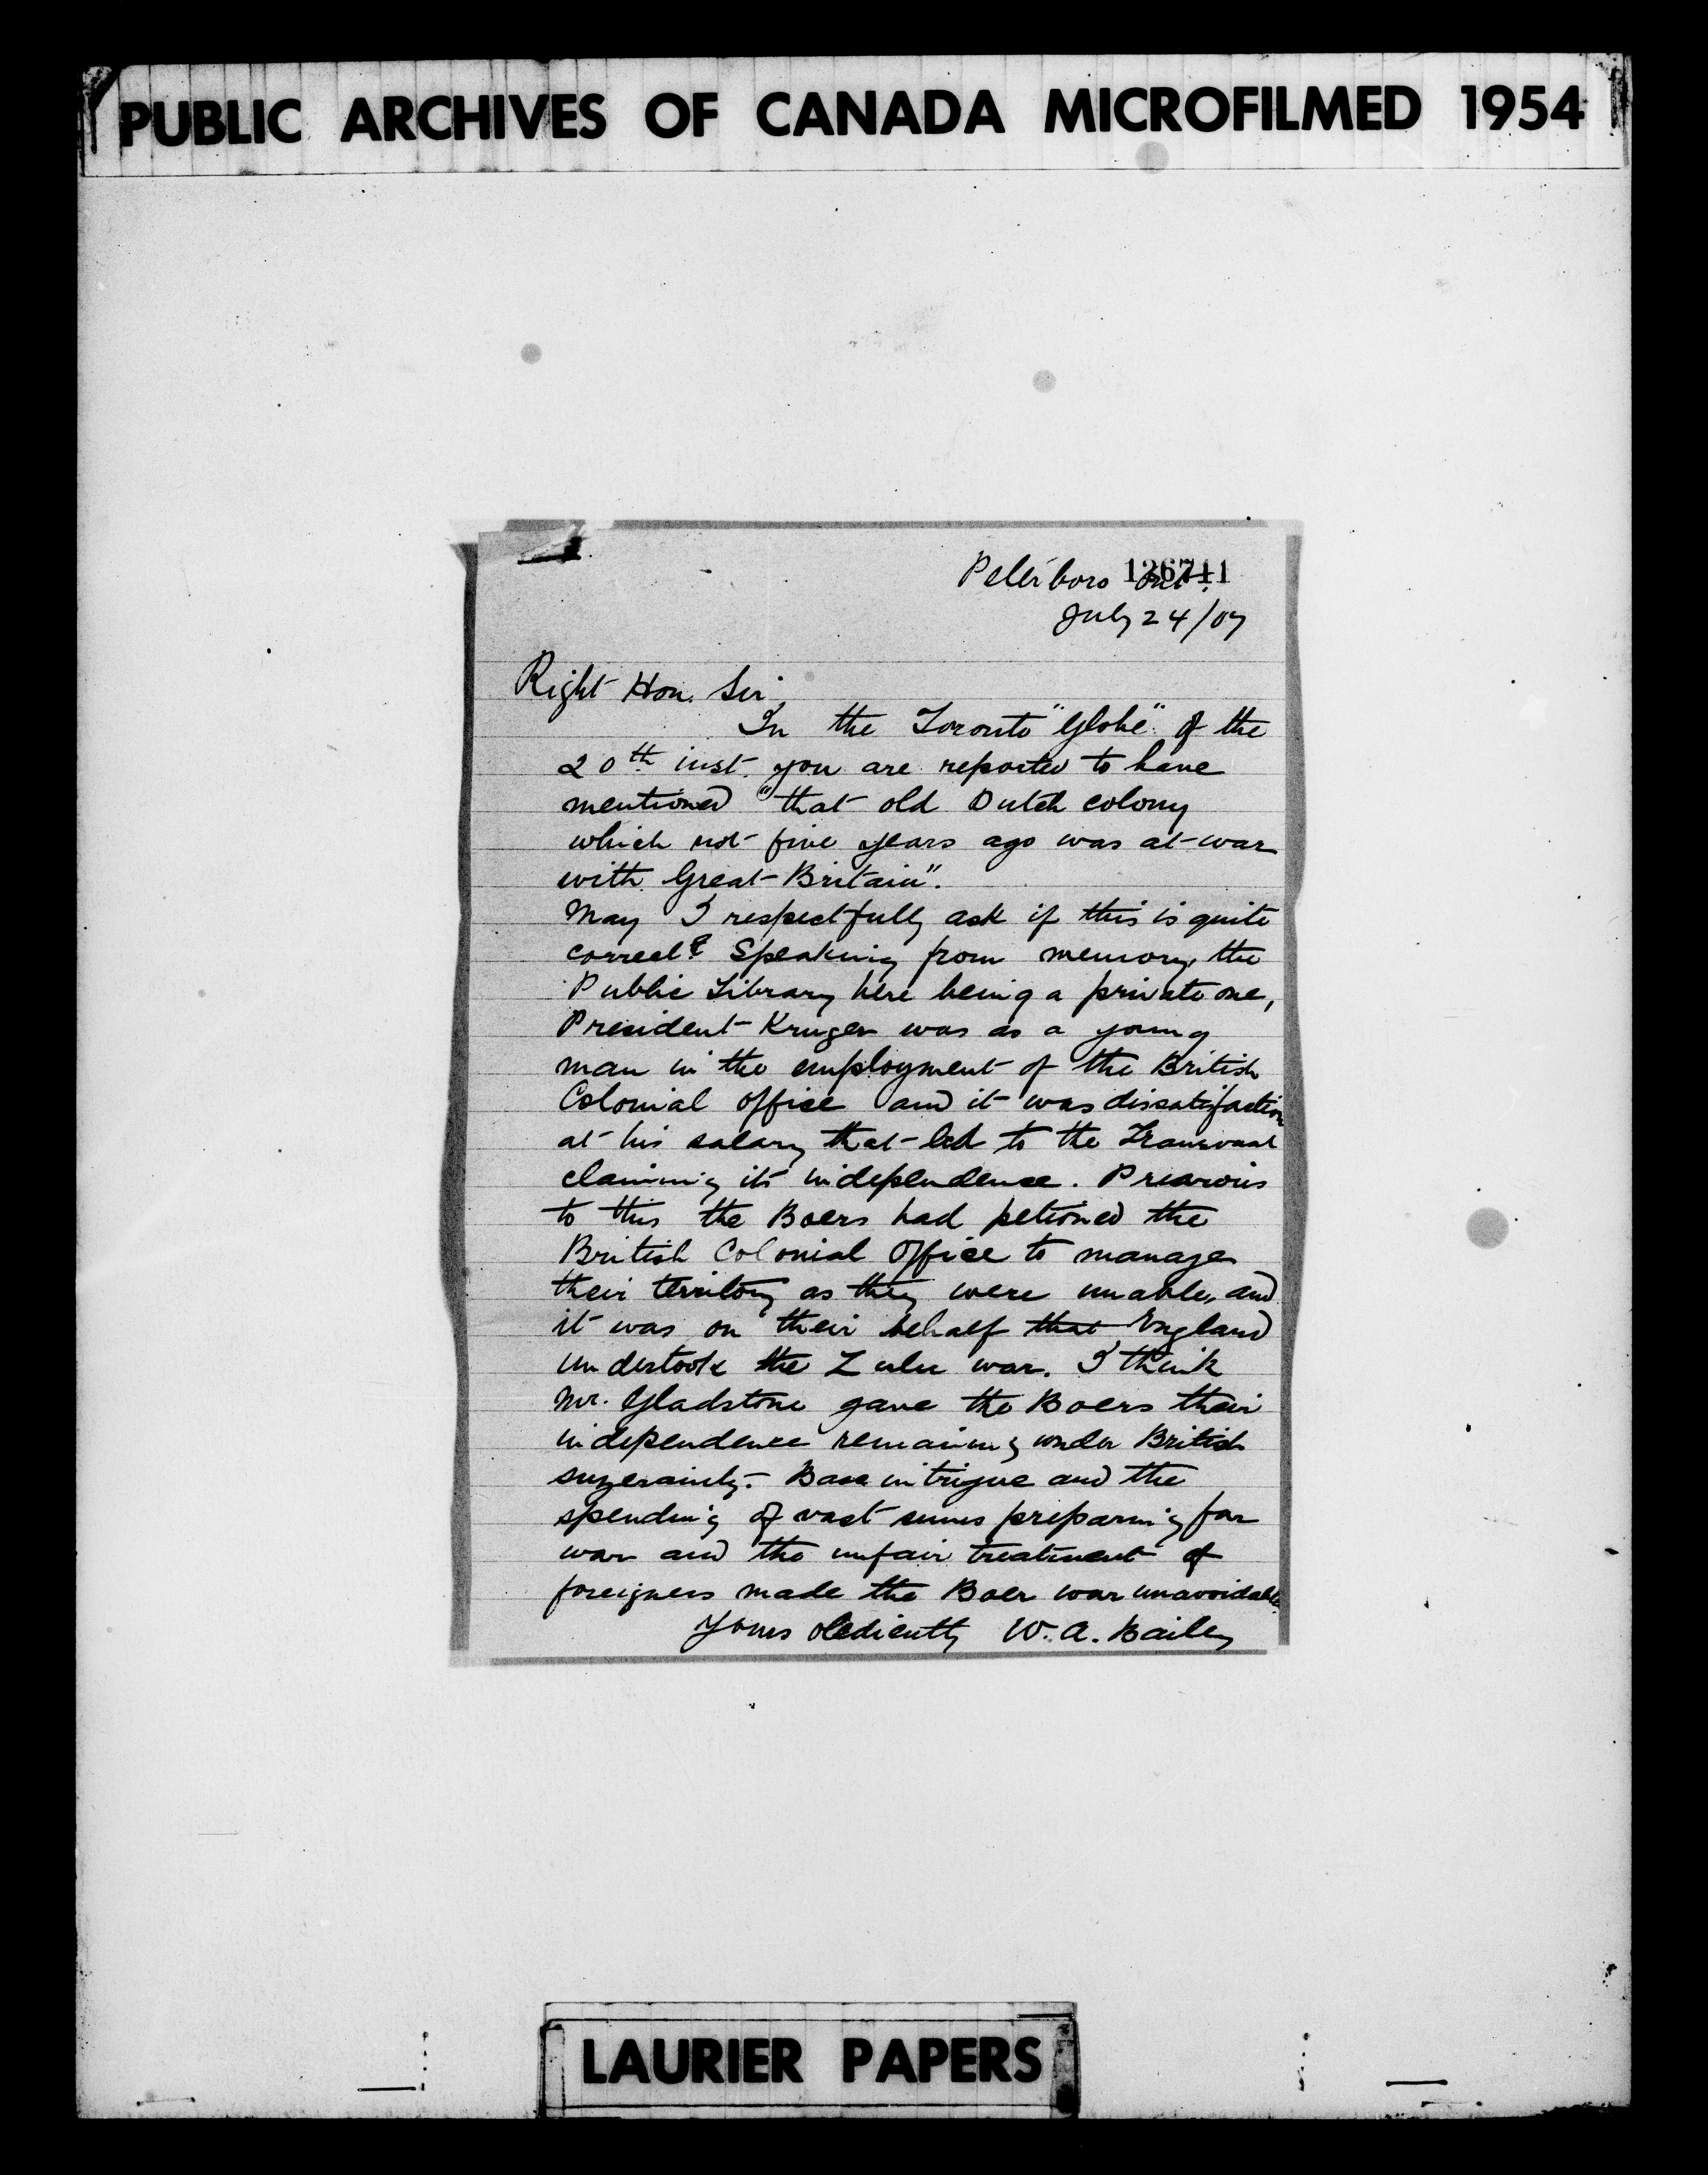 PUBLIC ARCHIVES OF CANADA MICROFILMED 1954
Peterboro Ont.
136711
July 24/07
Right Hon. Sir
In the Toronto "Globe" of the
20th inst. you are reported to have
mentioned "that old Dutch colony
which not five years ago was at war
with Great Britain".
May I respectfully ask if this is quite
correct? Speaking from memory, the
Public Library here being a private one,
President Kruger was as a young
man in the employment of the British
Colonial office and it was dissatisfaction
at his salary that led to the Transvaal
claiming its independence. Previous
to this the Boers had petioned the
British Colonial Office to manage
their territory as they were unable, and
it was on their behalf that England
undertook the Zulu war. I think
Mr. Gladstone gave the Boers their
independence remaining under British
suzerainty. Base intrigue and the
spending of vast sums preparing for
war and the unfair treatment of
foreigners made the Boer war unavoidable.
Yours obediently W. A. Bailey
LAURIER PAPERS